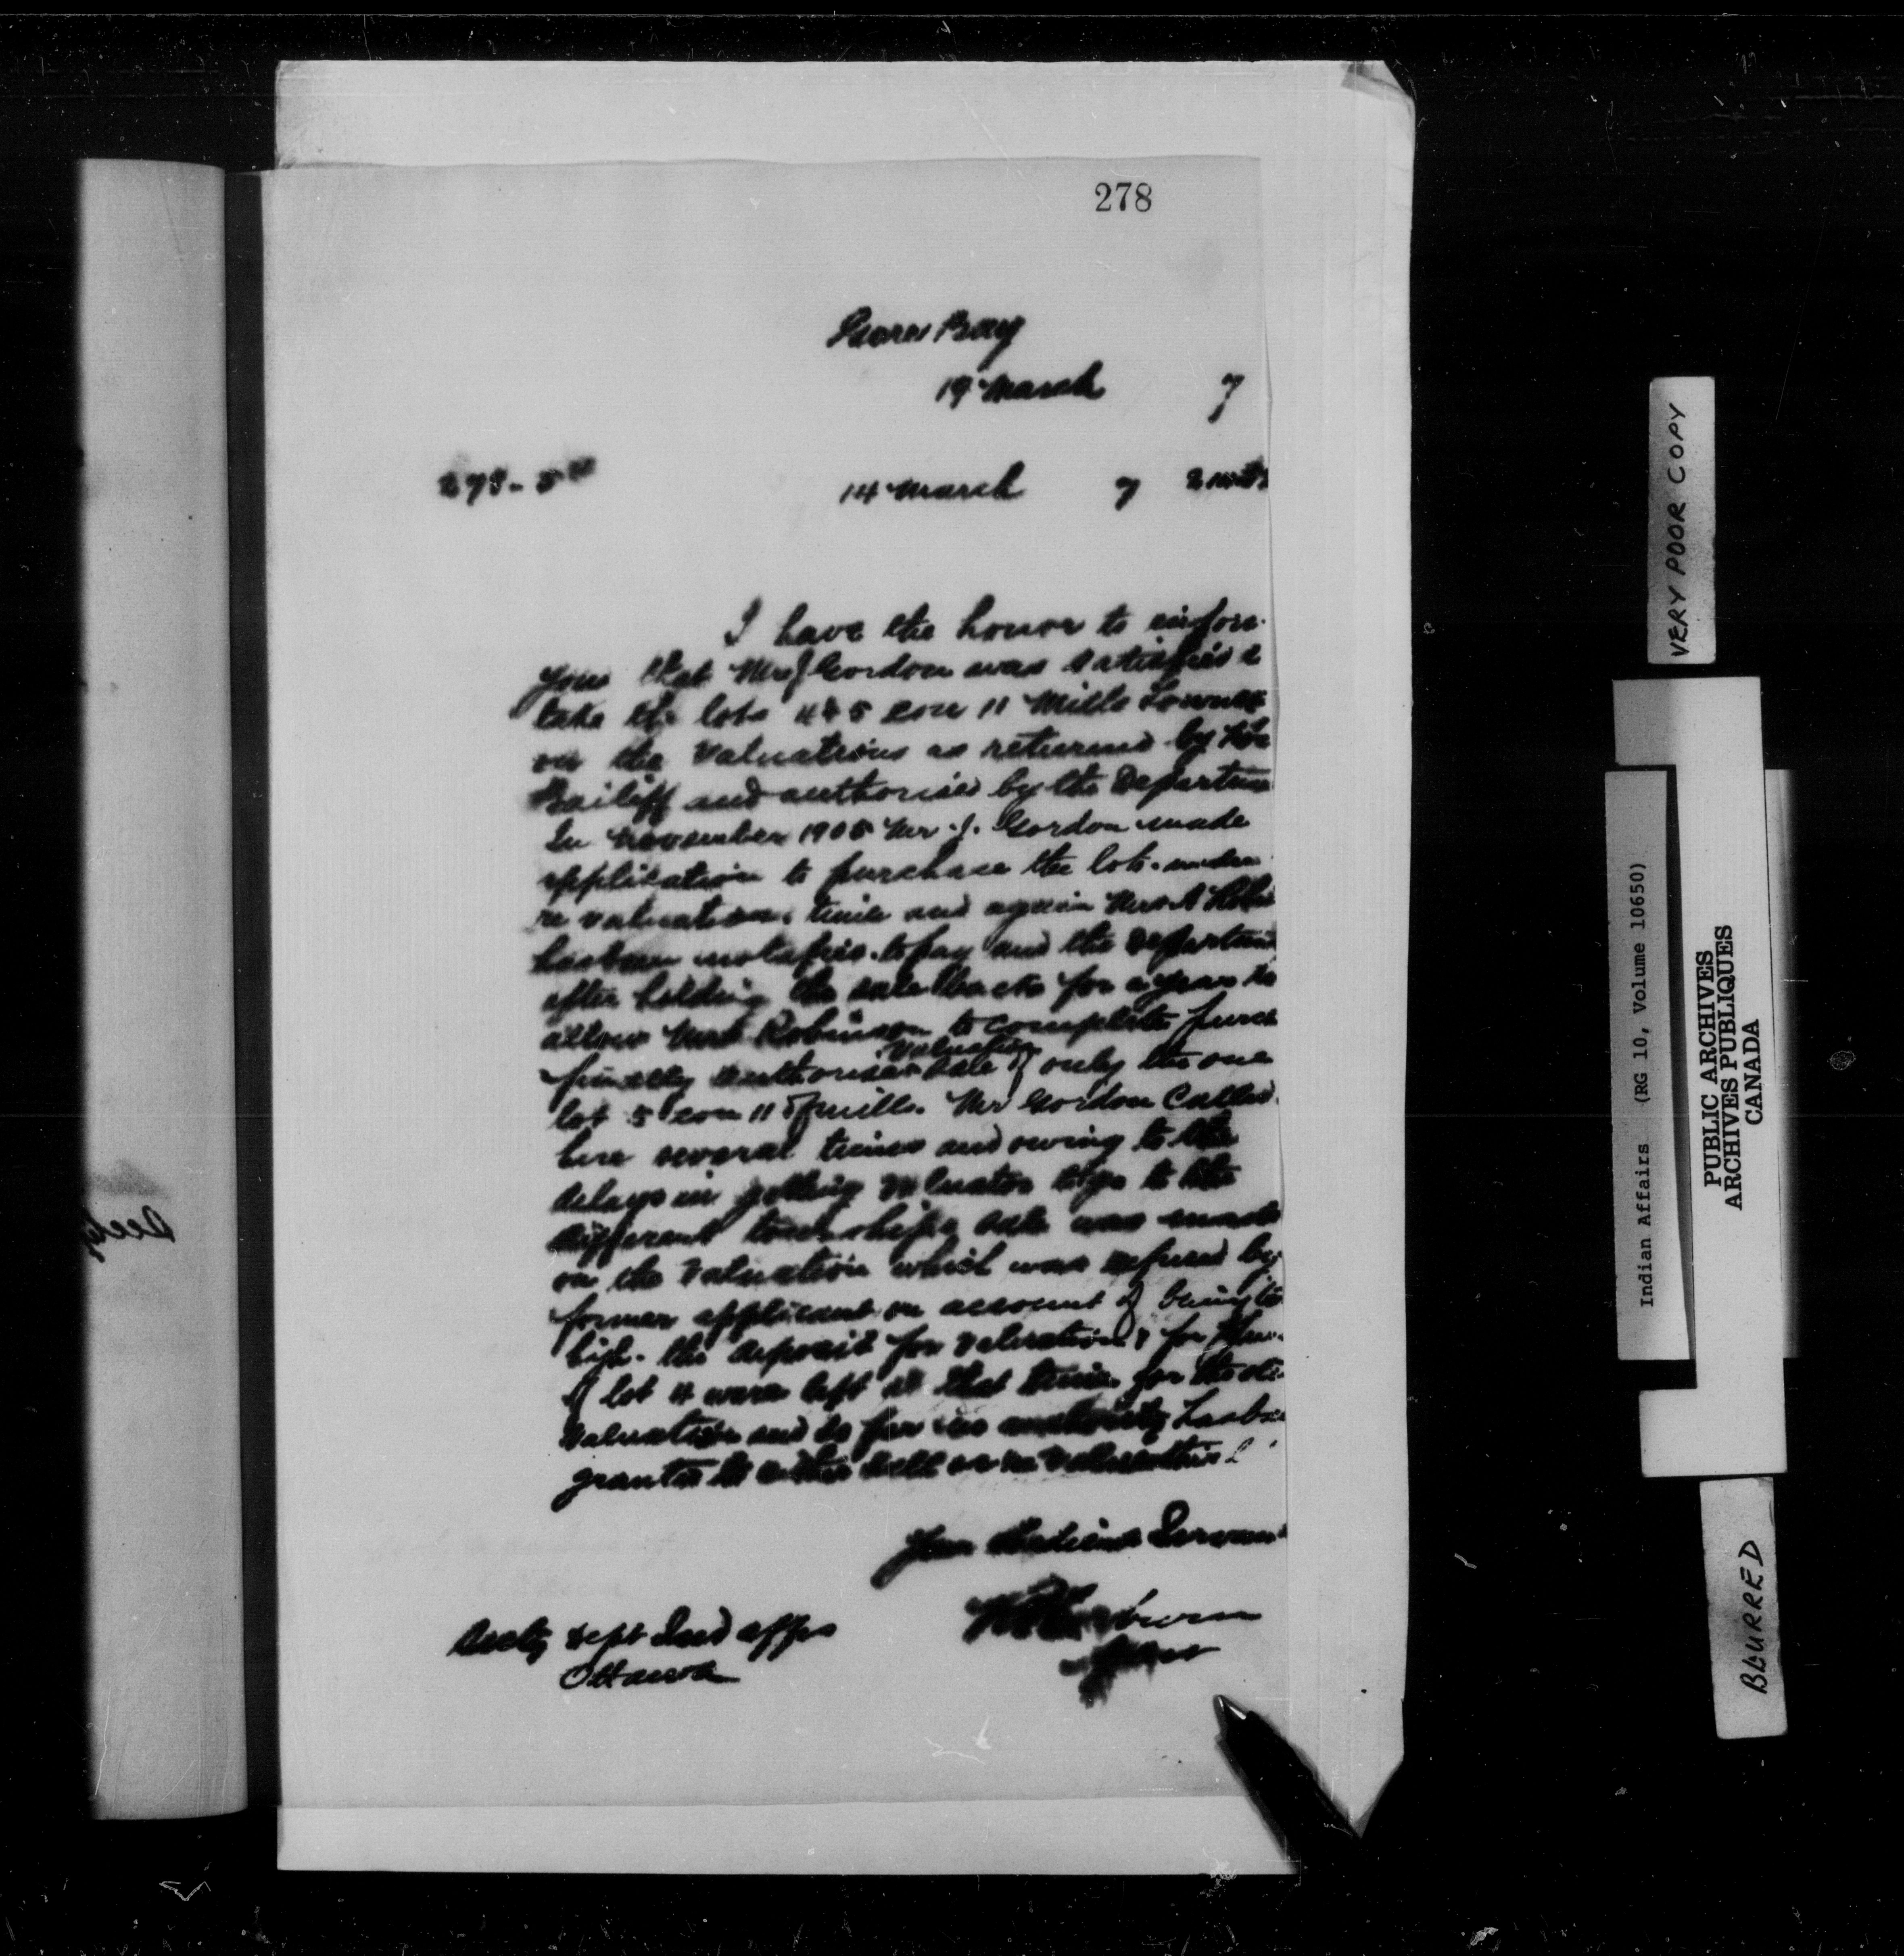 278
Gore Bay
19 March 7
14 March 7 2
I have the honor to inform
you that Mr J Gordon was satisfied
take the lots 4 & 5 con 11 Mills
on the Valuations as returned by
Bailiff and authorised by the Departm
In November 1905 Mr J. Gordon made
application to purchase the lots under
re valuation. time and again Mrs A
has been to pay and the Departm
after holding the sale back for a year to
allow Mrs Robinson to complete purch
finally authorised Valuation sale of only the one
lot 5 con 11 of mills. Mr Gordon Called
here several times and owing to the
delays in getting Valuator to go to the
different townships sale was made
on the Valuation which was refused by
former applicant on account of being to
high. the deposit for valuation & for
of lot 4 were left at that time for the
Valuation and so far no authority has be
granted to either sell or re valuation
Your Obedient Servant
Secty Dept Ind Affrs
Ottawa
Secty
VERY POOR COPY
Indian Affairs (RG 10, Volume 10650)
PUBLIC ARCHIVES
ARCHIVES PUBLIQUES
CANADA
BLURRED